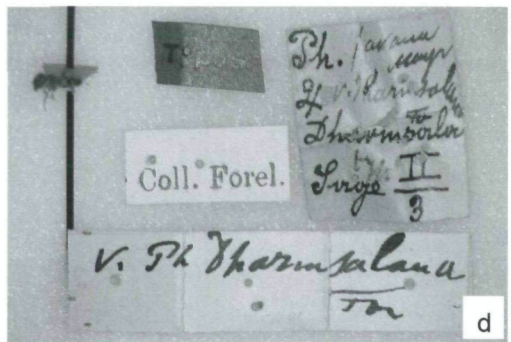 Typus
Ph. javana
Mayr
☿ v. Dharmsalana
For
Dharmsala
Sage II
3
Coll. Forel.
v. Ph Dharmsalana
For
d